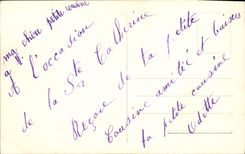 ma chère petite cousine
A l'occasion
de la Ste Catherine
Reçois de ta petite
Cousine amitié et baisers
ta petite cousine
Odette